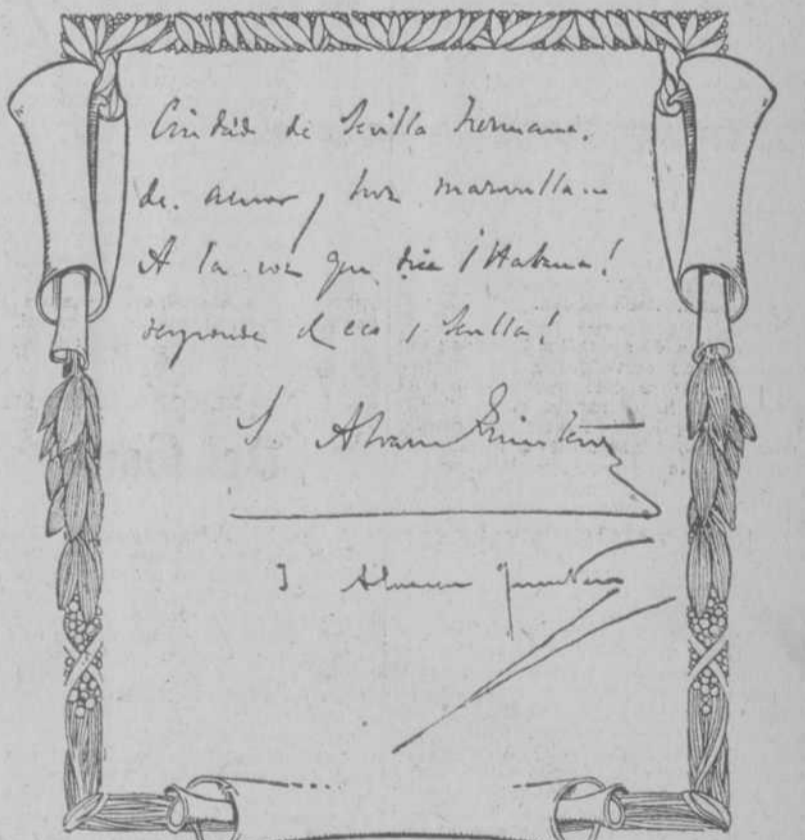 Ciudad de Sevilla hermana,
de amor y luz maravilla...
A la voz que dice ¡Habana!
responde el eco ¡Sevilla!
S. Alvarez Quintero
J. Alvarez Quintero